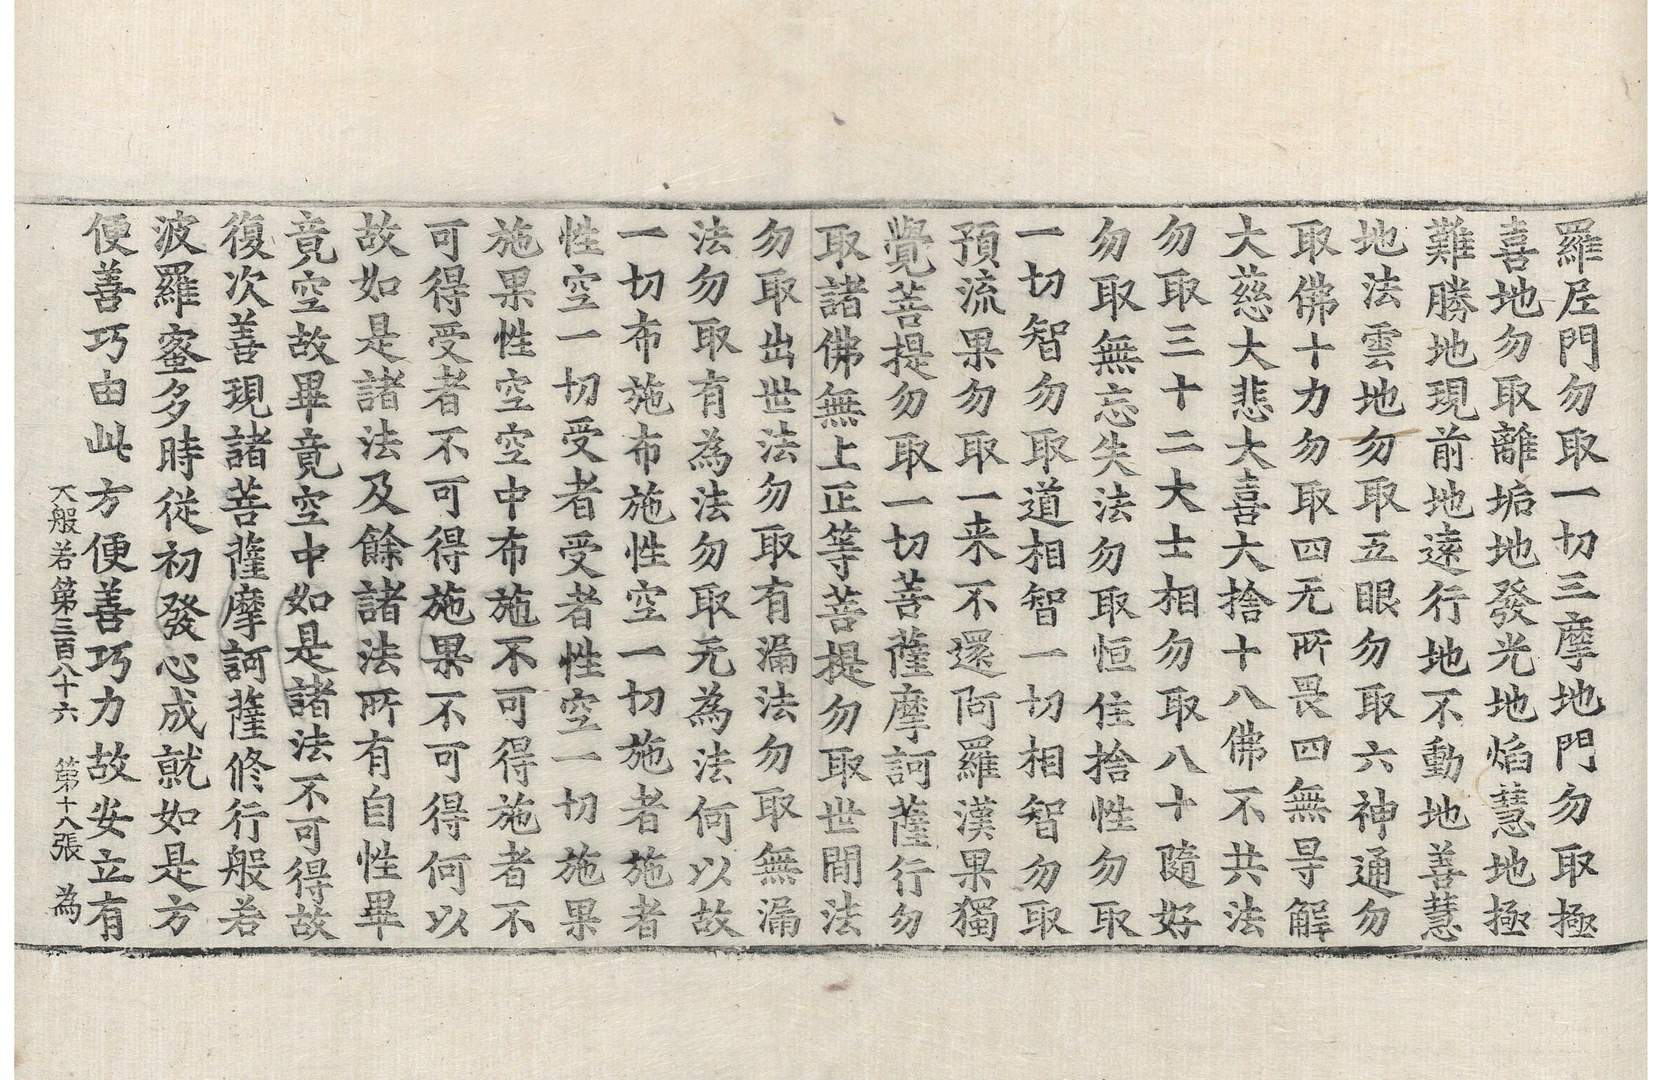 羅尼門勿取一切三摩地門勿取極
喜地勿取離垢地發光地焰慧地極
難勝地現前地遠行地不動地善慧
地法雲地勿取五眼勿取六神通勿
取佛十力勿取四无所畏四無导解
大慈大悲大喜大捨十八佛不共法
勿取三十二大士相勿取八十隨好
勿取無忘失法勿取恒住捨性勿取
一切智勿取道相智一切相智勿取
預流果勿取一来不還阿羅漢果獨
覺菩提勿取一切菩薩摩訶薩行勿
取諸佛無上正等菩提勿取世間法
勿取出世法勿取有漏法勿取無漏
法勿取有為法勿取无為法何以故
一切布施布施性空一切施者施者
性空一切受者受者性空一切施果
施果性空空中布施不可得施者不
可得受者不可得施果不可得何以
故如是諸法及餘諸法所有自性畢
竟空故畢竟空中如是諸法不可得故
復次善現諸菩薩摩訶薩修行般若
波羅蜜多時從初發心成就如是方
便善巧由此方便善巧力故安立有
大般若第三百八十六 第十八張 為